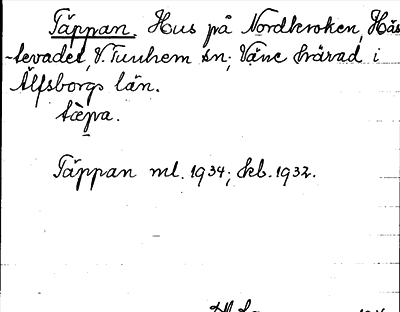 Täppan. Hus på Nordkroken, Häs
-tevadet, V. Tunhem sn; Väne härad i
Älfsborgs län.
tæ̀pa.
Täppan ml. 1934; kb. 1932.